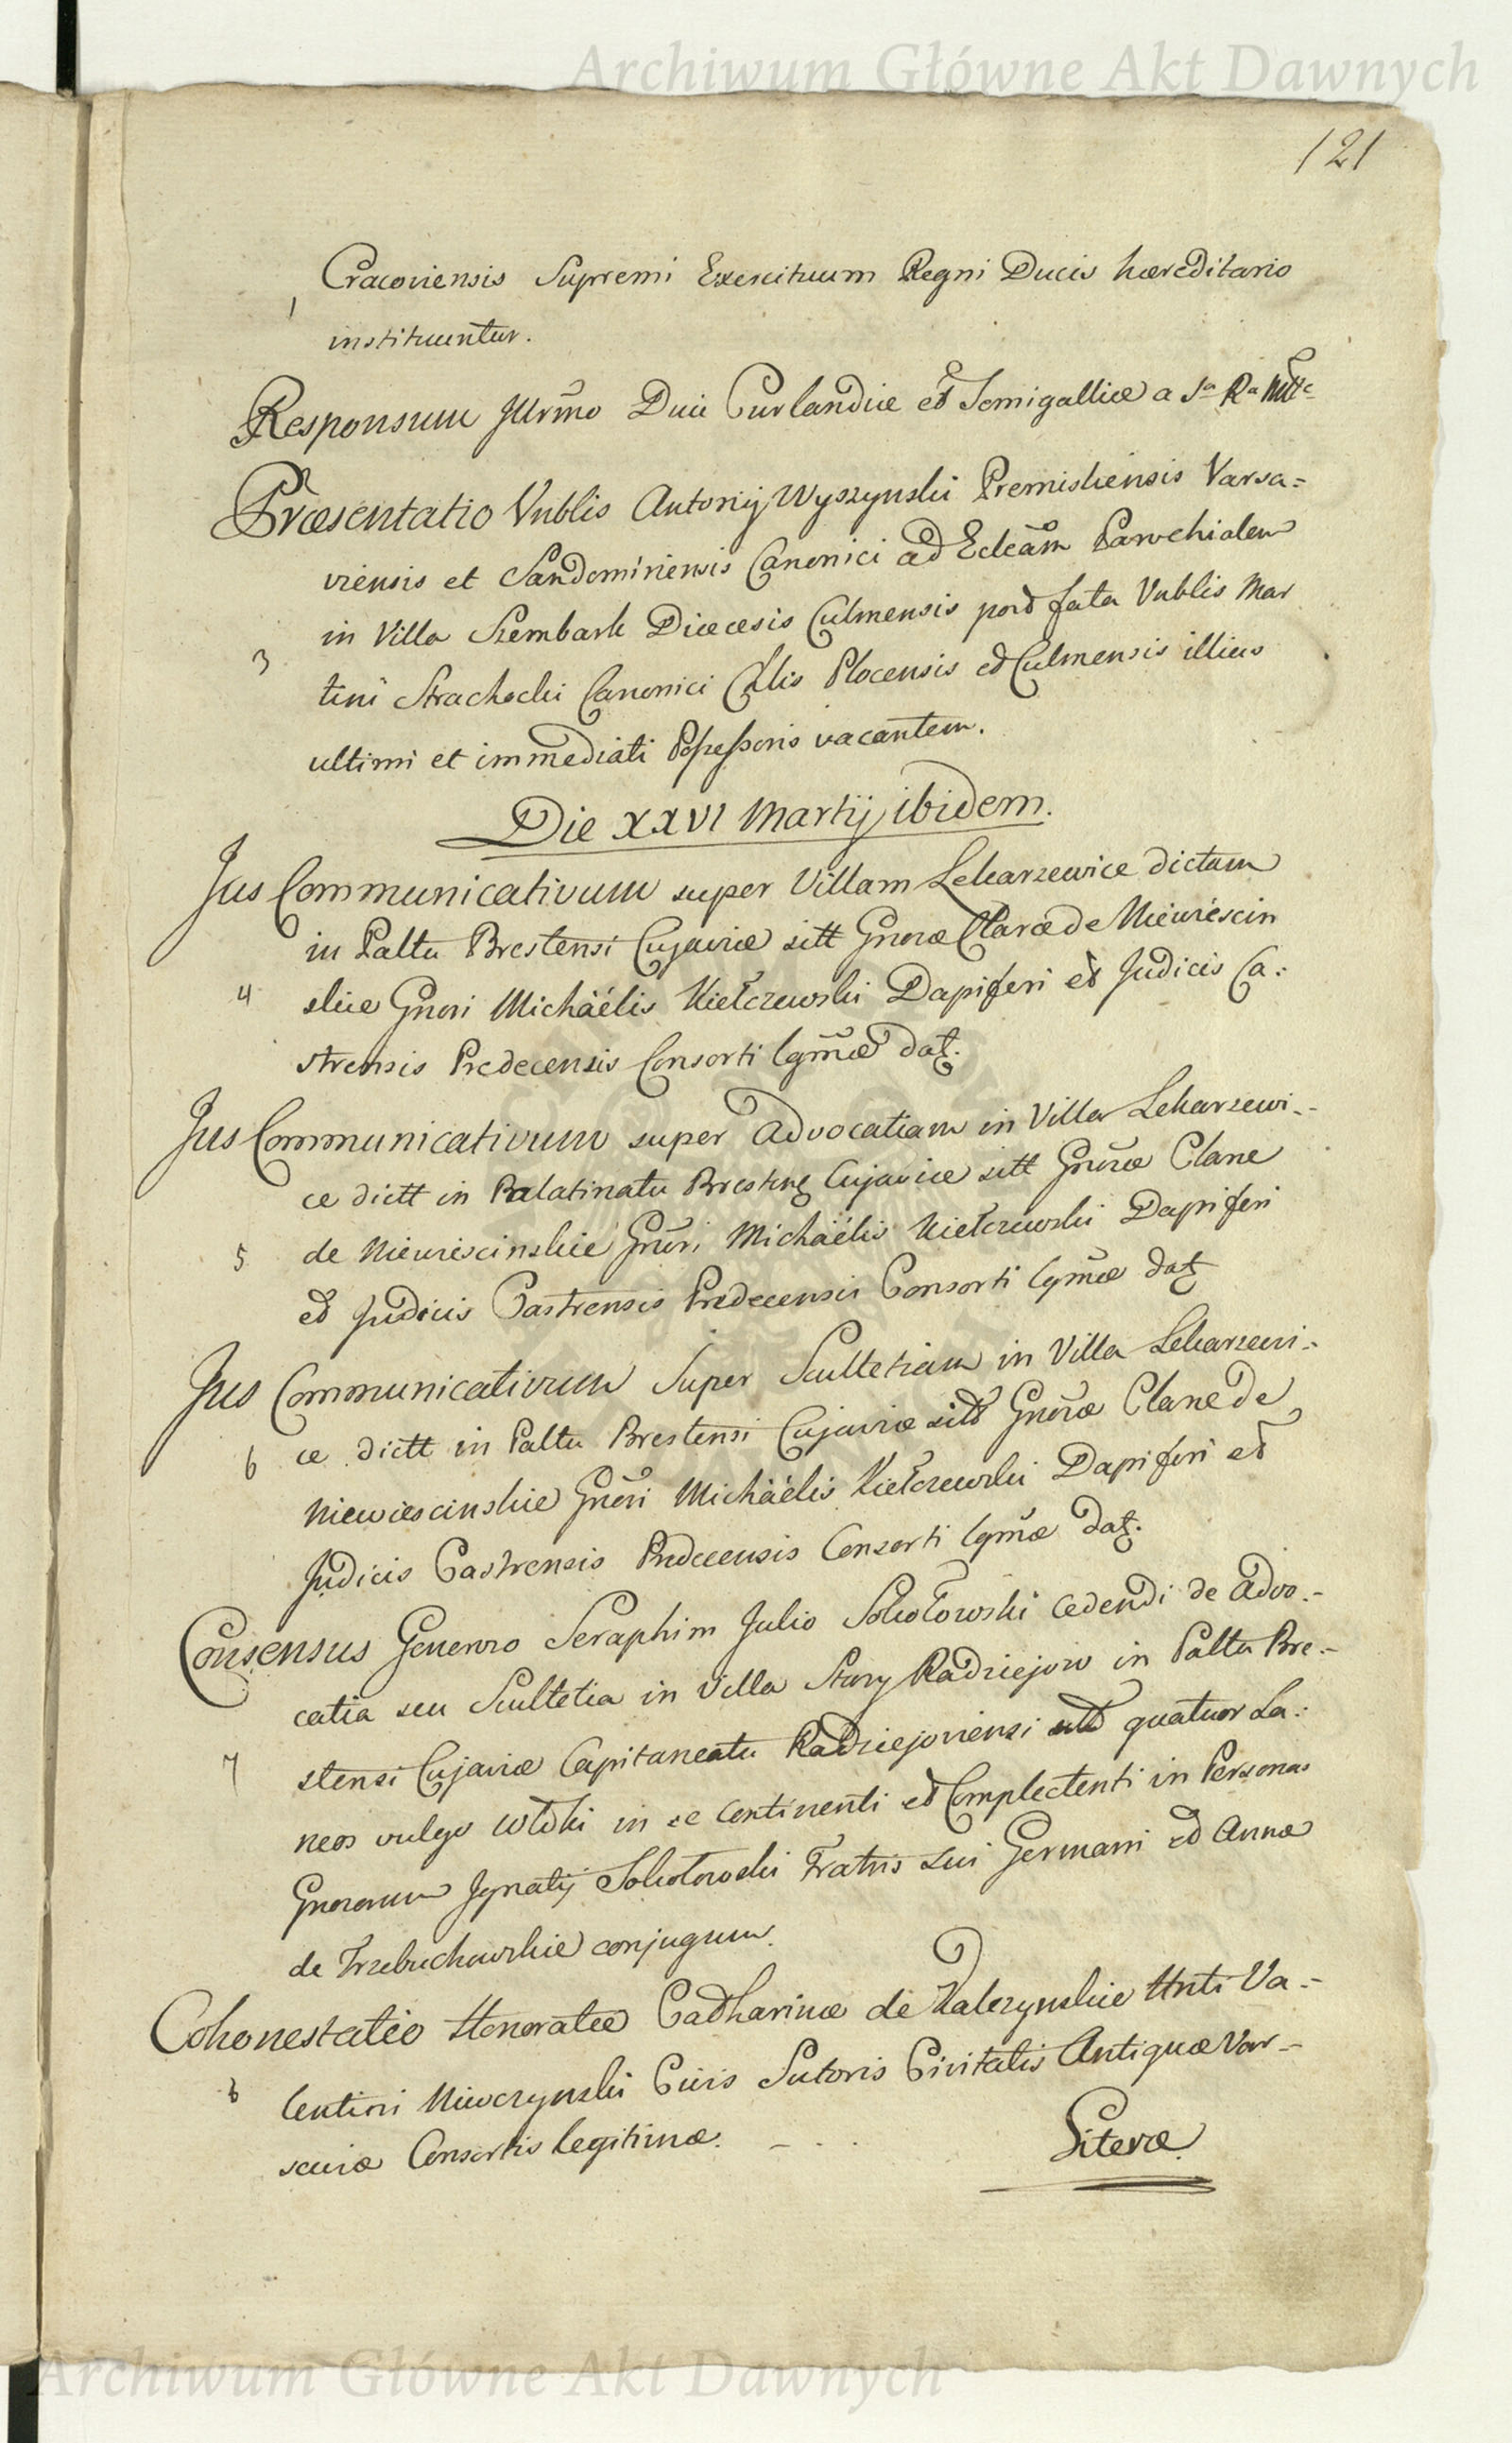 Archiwum Główne Akt Dawnych
121
Cracoviensis Supremi Exercituum Regni Ducis hæreditario
1
instituuntur.
Responsum Illrmo Duci Curlandiæ et Semigalliæ a Sa Ra Mtte
Præsentatio Vnblis Antonij Wyszynski Premisliensis Varsa=
viensis et Sandomiriensis Canonici ad Eccleam Parochialem
in Villa Szembark Diæcesis Culmensis post fata Vnblis Mar
3
tini Strachocki Canonici Cthlis Plocensis et Culmensis illius
ultimi et immediati Possessoris vacantem.
Die XXVI Martij ibidem.
Jus Communicativum super Villam Lekarzewice dictam
in Pallu Brestensi Cujaviæ sitt Gnosæ Claræ de Niewiescin
4
skie Gnosi Michäélis Kiełczewski Dapiferi et Judicis Ca=
strensis Predecensis Consorti lgmæ dat.
Jus Communicativum super Advocatiam in Villa Lekarzewi=
ce dictt in Palatinatu Bresteng Cujaviæ sitt Gnosæ Claræ
5
de Niewiescinskie Gnosi Michäélis Kiełczewski Dapiferi
et Judicis Castrensis Predecensis Consorti lgmæ dat
Jus Communicativum Super Scultetiam in Villa Lekarzewi=
6
ce dictt in Pallu Brestensi Cujaviæ sitt Gnosæ Claræ de
Niewiescinskie Gnosi Michäélis Kiełczewski Dapiferi et
Judicis Castrensis Predecensis Consorti lgmæ dat.
Consensus Generoso Seraphim Julio Sokołowski cedendi de Advo=
catia seu Scultetia in Villa Stary Radziejow in Pallu Bre=
7
stensi Cujaviæ Capitaneatu Radziejoviensi sitt quatuor La=
neos vulgo Włoki in se continenti et Complectenti in Personas
Gnosorum Ignatij Sokołowski Fratris sui Germani et Annæ
de Trzebuchowskie conjugum.
Cohonestatio Honoratæ Catharinæ de Kalczynskie Hnti Va=
8
lentini Niewczynski Civis Sutoris Civitatis Antiquæ Var=
saviæ Consortis legitimæ.
Literæ
Archiwum Główne Akt Dawnych